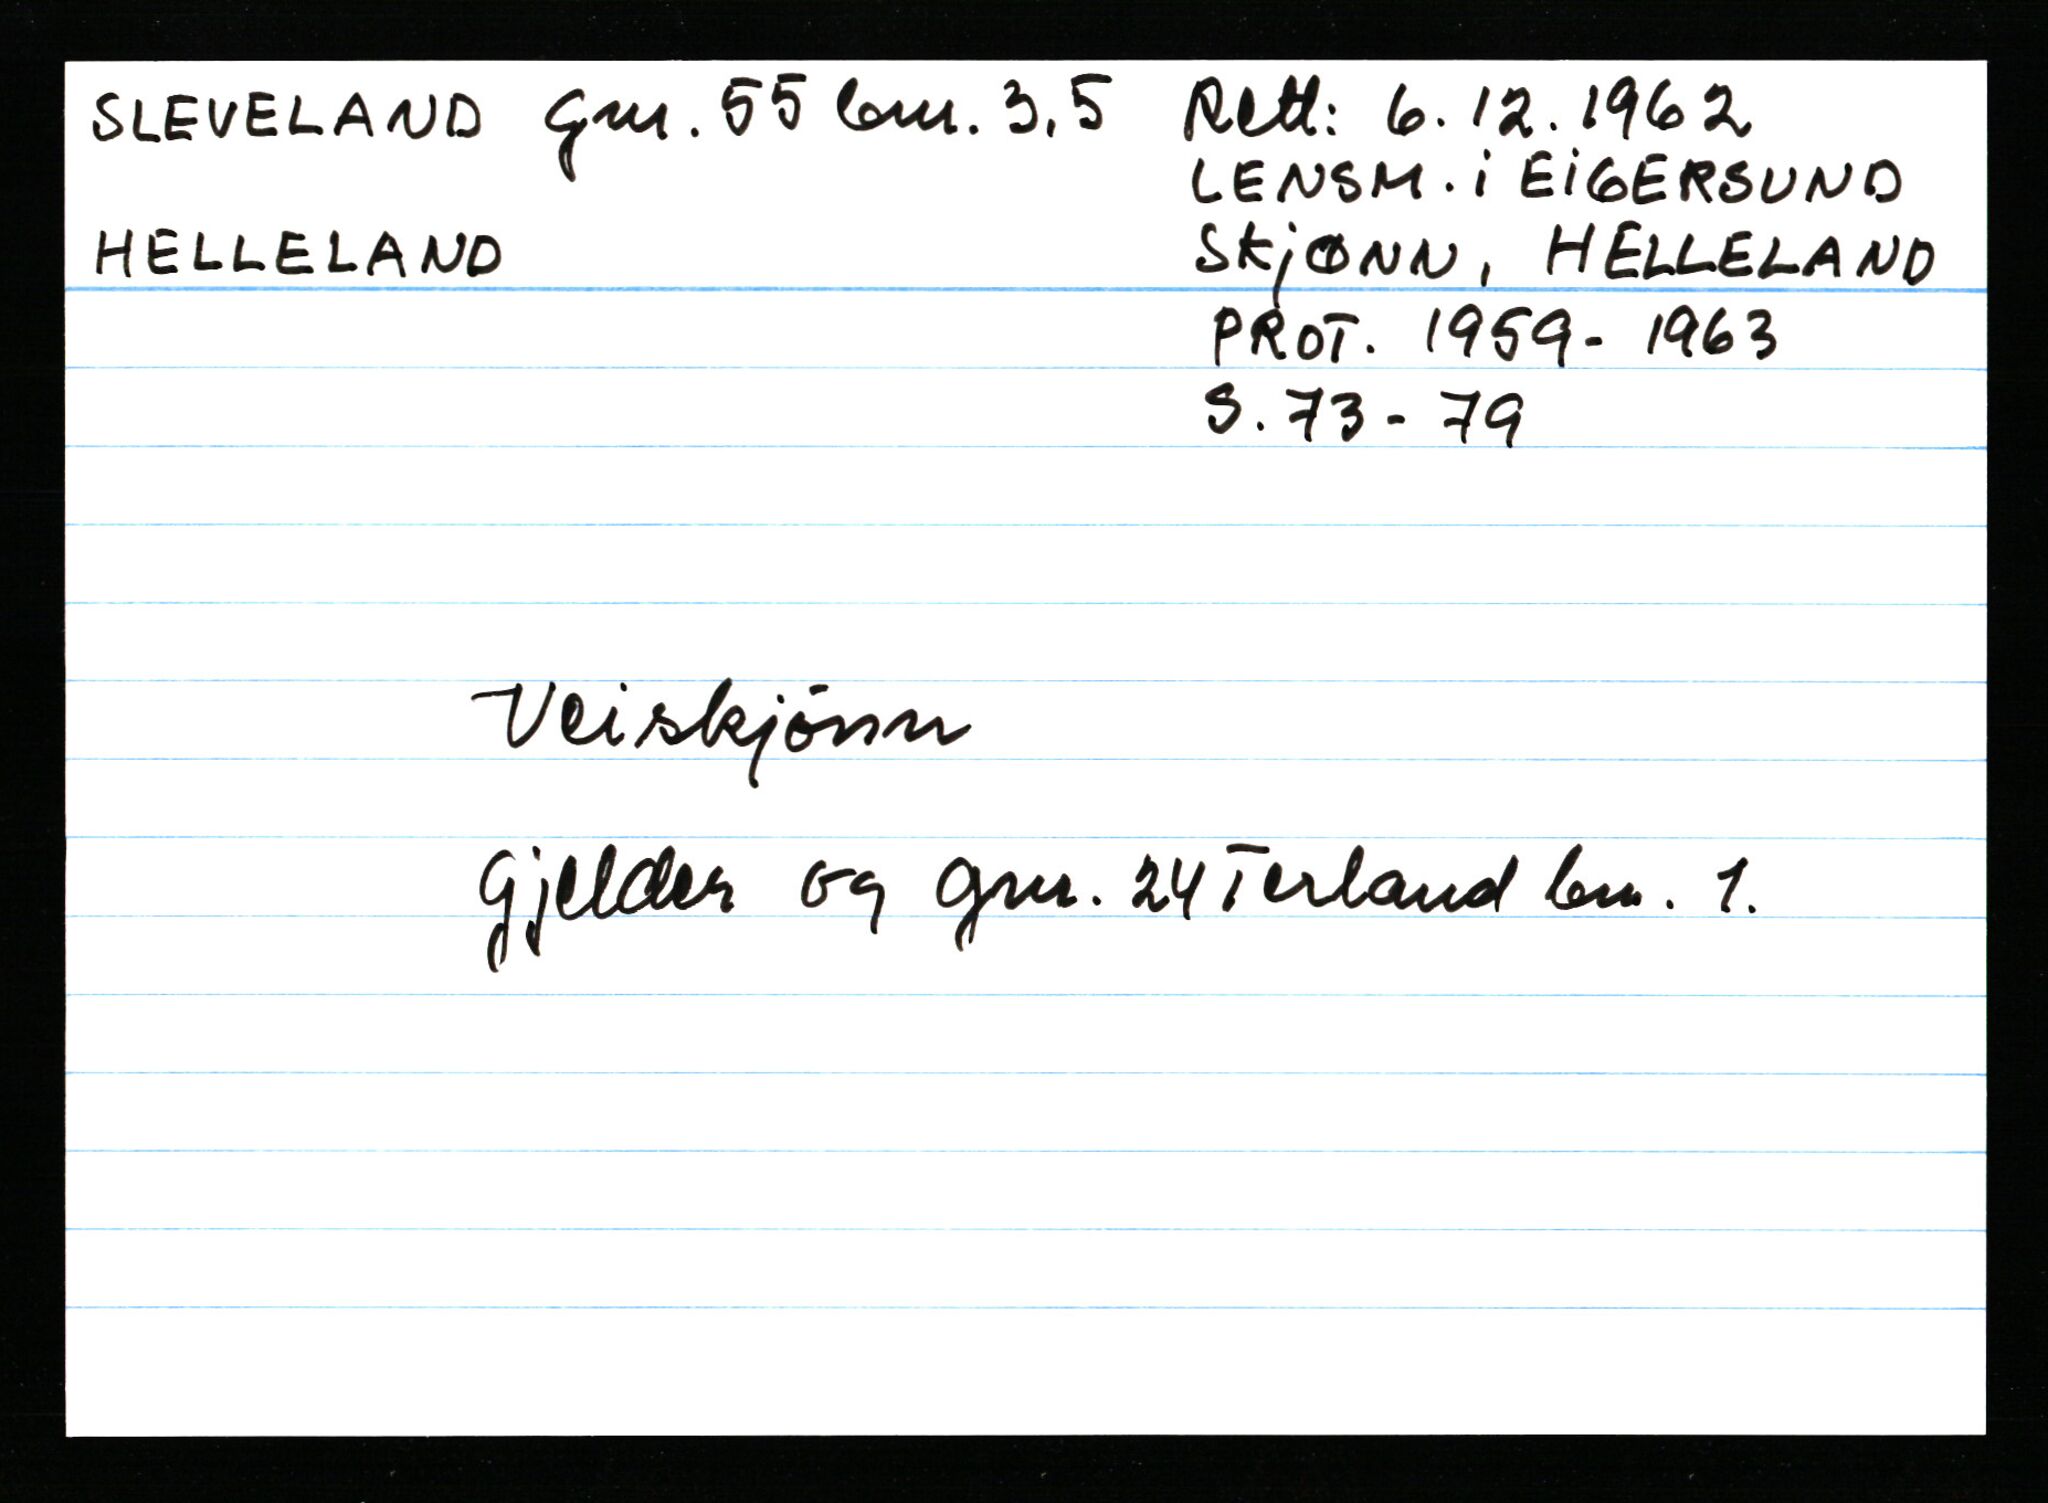 SLEVELAND gnr. 55 bnr. 3,5 Rett: 6.12.1962
LENSM. i EIGERSUND
HELLELAND SKJØNN, HELLELAND
PROT. 1959-1963
S. 73-79
Veiskjönn
Gjelder og gnr. 24 Terland bnr. 1.